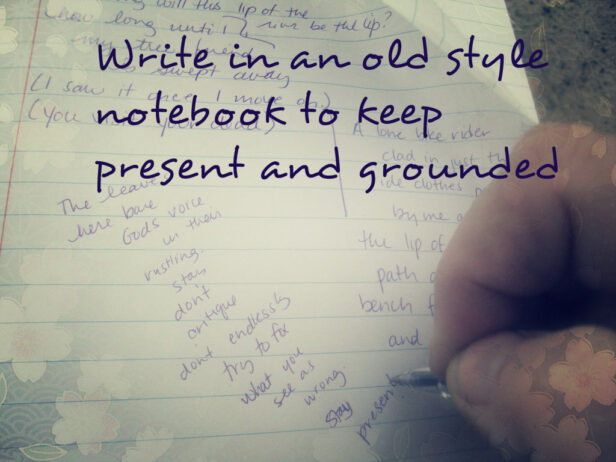 Write in an old style
notebook to keep
present and grounded
will this lip of the
how long until I be the lip?
my
swept away
(I saw it once I move on)
(you
The leaves
here bare
Gods voice
in their
rustling.
stay
don't
critique
dont endlessly
try to fix
what you
see as
wrong
stay
present
A lone bike rider
clad in just th
clothes
by me a
the lip of
path
bench f
and